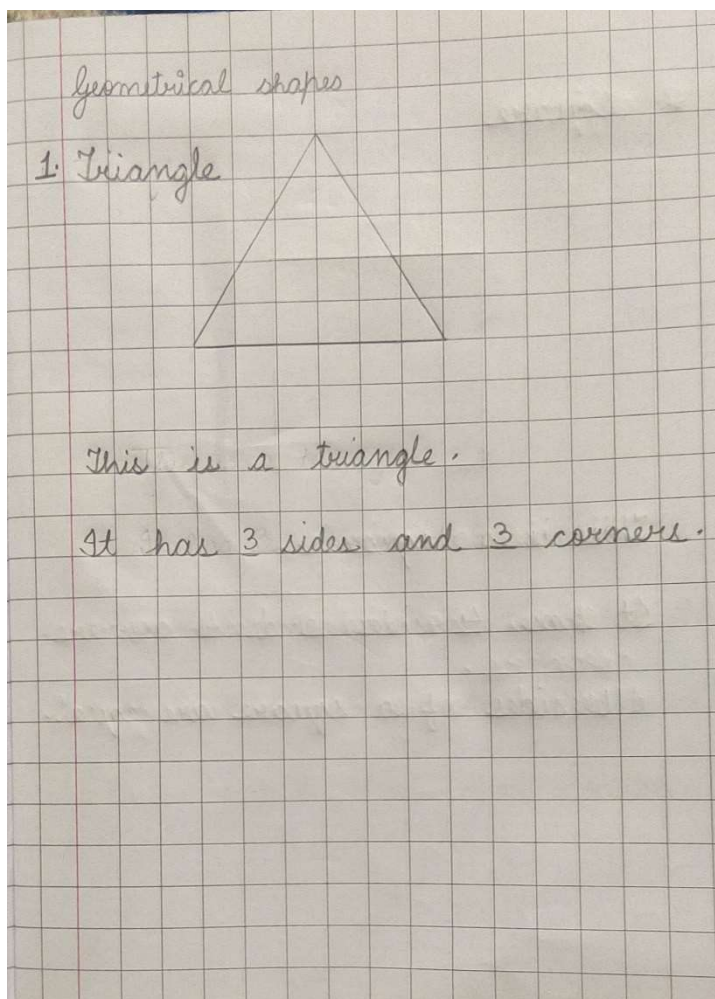 Geometrical shapes
1. Triangle
This is a triangle.
It has 3 sides and 3 corners.